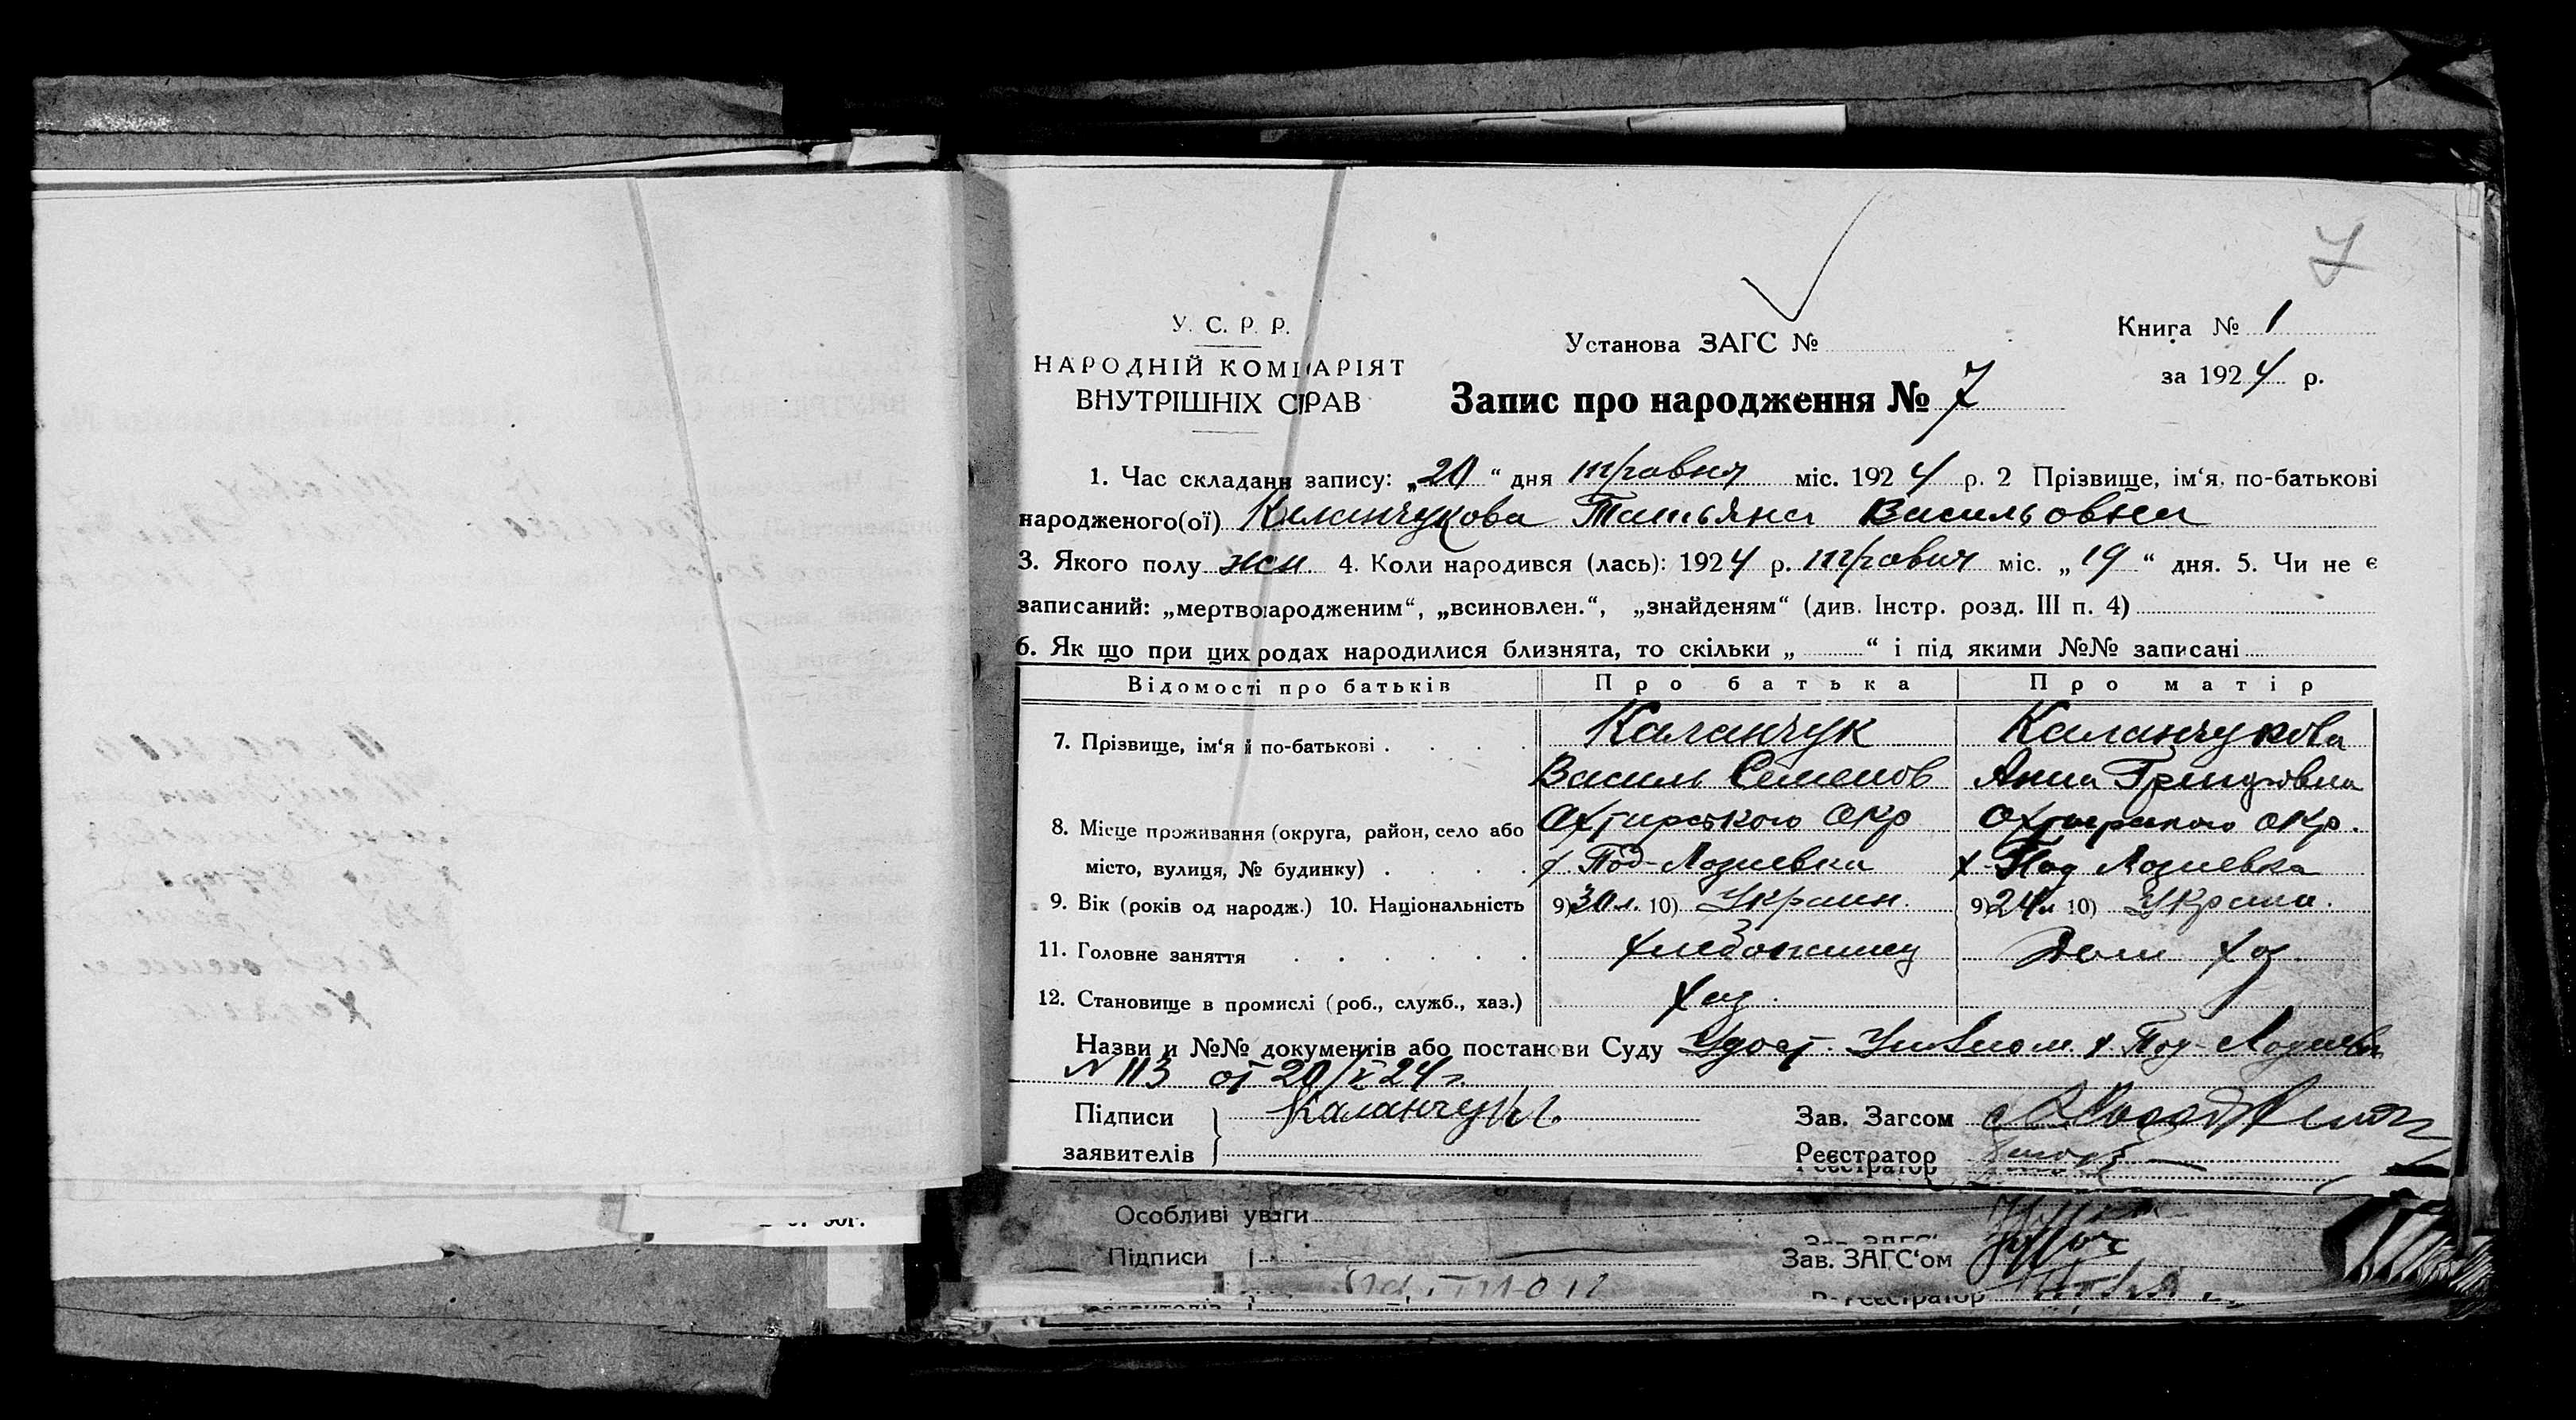 7
У. С. Р. Р.
НАРОДНІЙ КОМІСАРІЯТ
ВНУТРІШНІХ СПРАВ
Установа ЗАГС №
Книга № 1
за 1924 р.
Запис про народження № 7
1. Час складанн запису: „20“ дня травня міс. 1924 р. 2 Прізвище, ім‘я, по-батькові
народженого(ої) Каланчукова Татьяна Васильовна
3. Якого полу жен. 4. Коли народився (лась): 1924 р. травня міс. „19“ дня. 5. Чи не є
записаний: „мертвонародженим“, „всиновлен.“, „знайденям“ (див. Інстр. розд. III п. 4)
6. Як що при цих родах народилися близнята, то скільки „ “ і під якими №№ записані
Відомості про батьків Про батька Про матір
7. Прізвище, ім‘я й по-батькові Каланчук Каланчукова
Василь Семенов Анна Григоровна
8. Місце проживання (округа, район, село або Охтирського Окр Охтирского Окр.
місто, вулиця, № будинку) х. Под-Лозиевка х. Под Лозиевка
9. Вік (років од народж.) 10. Національність 9) 30 л. 10) Украин. 9) 24 л 10) Украин.
11. Головне заняття хлебопашец Дом. хоз.
12. Становище в промислі (роб., служб., хаз.) Хоз.
Назви и №№ документів або постанови Суду Удост. х Под-Лозиевк
N 113 от 20/V 24 г.
Підписи Каланчук
заявителів
Зав. Загсом
Реєстратор
Реєстратор
Особливі уваги
Підписи
Зав. ЗАГС‘ом
заявителів
Реєстратор